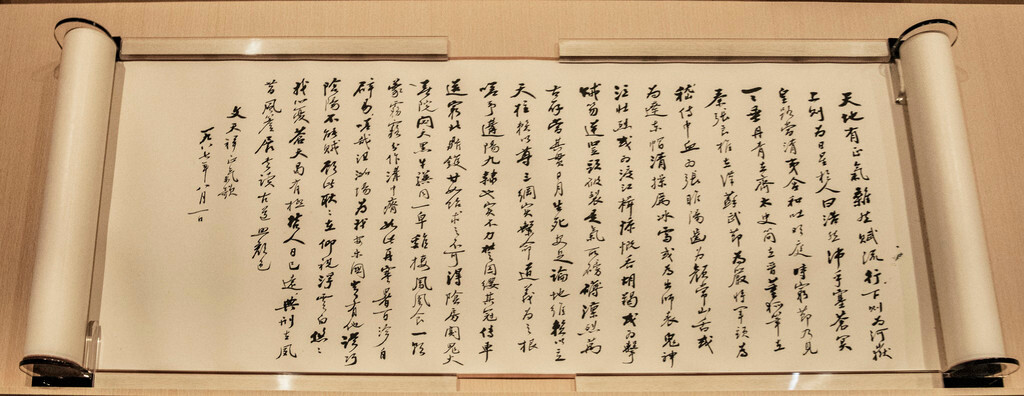 天地有正氣雜然賦流行下則為河嶽
上則為日星於人曰浩然沛乎塞蒼冥
皇路當清夷含和吐明庭時窮節乃見
一一垂丹青在齊太史簡在晉董狐筆在
秦張良椎在漢蘇武節為嚴將軍頭為
嵇侍中血為張睢陽齒為顏常山舌或
為遼東帽清操厲冰雪或為出師表鬼神
泣壯烈或為渡江楫慷慨吞胡羯或為擊
賊笏逆豎頭破裂是氣所磅礴凜烈萬
古存當其貫日月生死安足論地維賴以立
天柱賴以尊三綱實繫命道義為之根
嗟予遘陽九隸也實不力楚囚纓其冠傳車
送窮北鼎鑊甘如飴求之不可得陰房闃鬼火
春院閟天黑牛驥同一皁雞棲鳳凰食一朝
蒙霧露分作溝中瘠如此再寒暑百沴自
辟易嗟哉沮洳場為我安樂國豈有他繆巧
陰陽不能賊顧此耿〻在仰視浮雲白悠〻
我心憂蒼天曷有極哲人日已遠典刑在夙
昔風簷展書讀古道照顏色
文天祥正氣歌
一九八七年八月一日